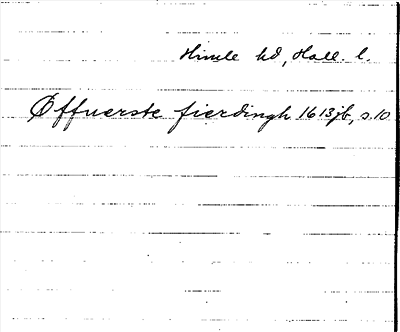 Himle hd, Hall. l.
Øffuerste fierdingh 1613jb, s.10